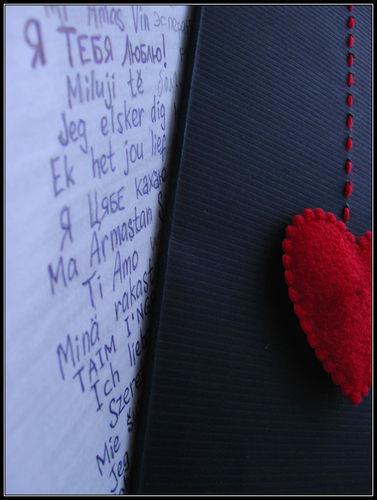 Mi Amas Vin
Я ТЕБЯ Люблю!
Miluji tě
Jeg elsker dig
Ek het jou lief
Я ЦЯБЕ каха
Ma Armastan S
Ti Amo
Minä rakast
TAIM I'NG
Ich lieb
Szere
Mie
Jeg